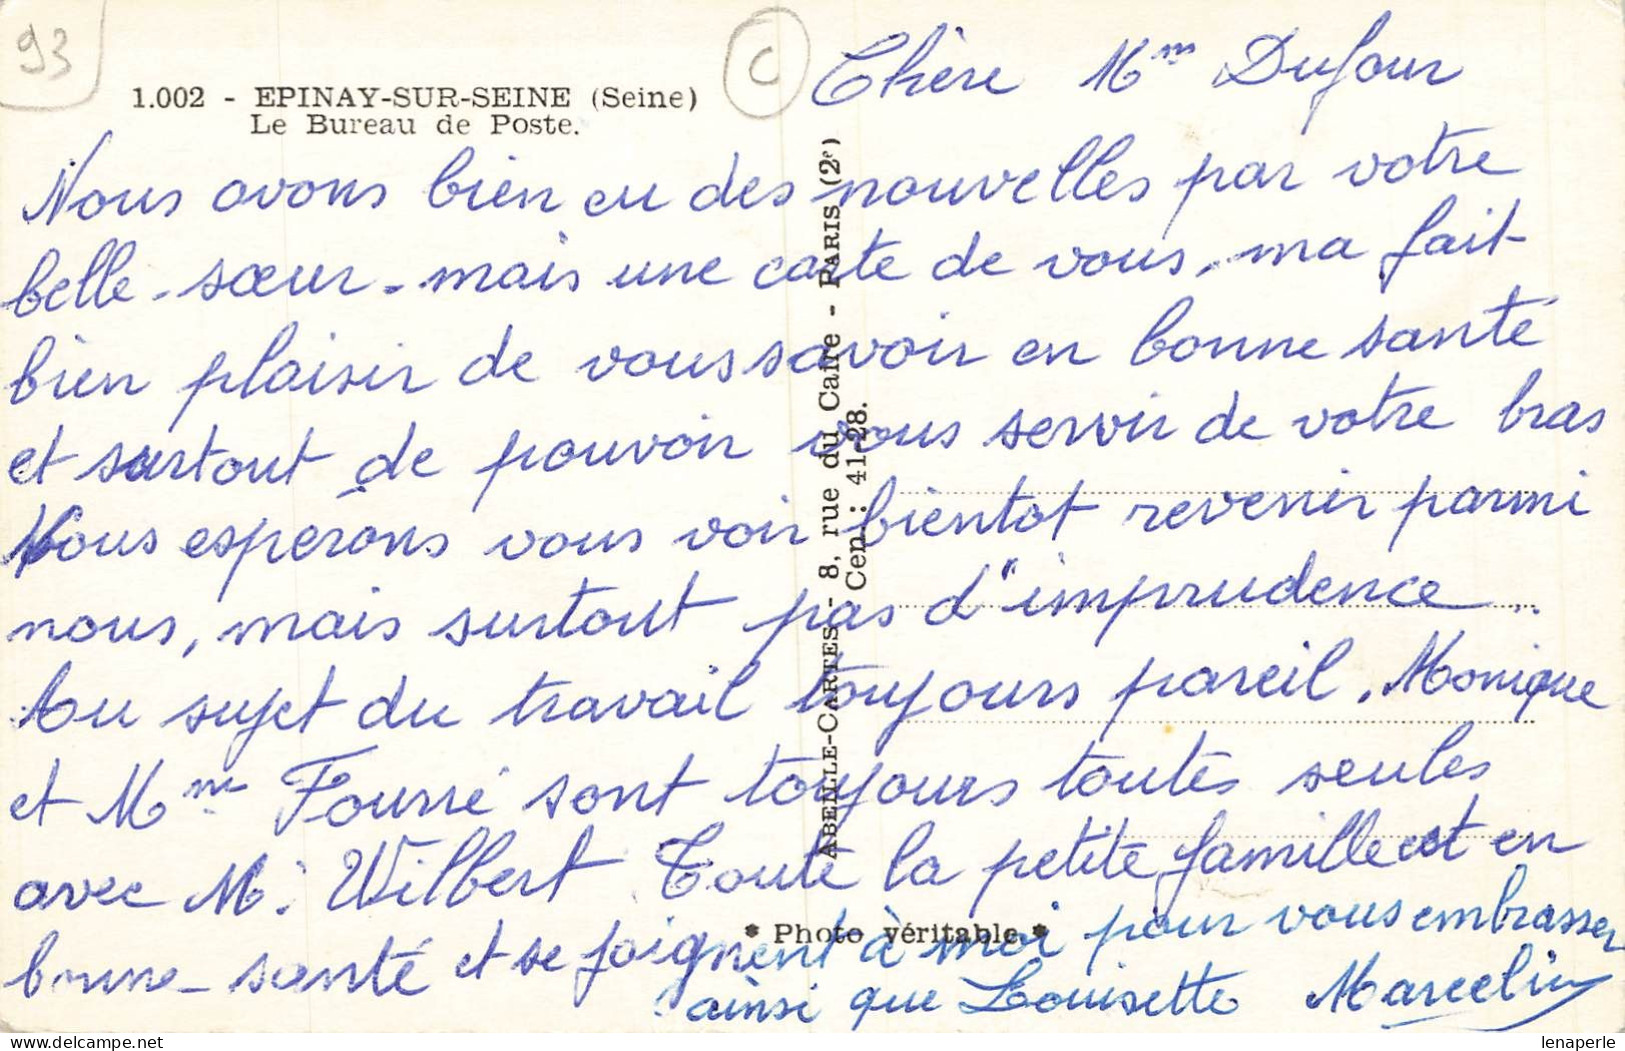 93
C
1.002 - EPINAY-SUR-SEINE (Seine)
Le Bureau de Poste.
Chère Mme Dufour
Nous avons bien eu des nouvelles par votre
belle-sœur - mais une carte de vous, ma fait
bien plaisir de vous savoir en bonne santé
et surtout de pouvoir vous servir de votre bras
Nous esperons vous voir bientot revenir parmi
nous, mais surtout pas d'imprudence..
Au sujet du travail toujours pareil. Monique
et Mme Fourré sont toujours toutes seules
avec M. Wilbert Toute la petite famille est en
bonne santé et se joignent à moi pour vous embrasser
ainsi que Louisette Marcelin
ABEILLE-CARTES - 8, rue du Caire - PARIS (2e)
Cen. : 41-28.
* Photo véritable *
lenaperle